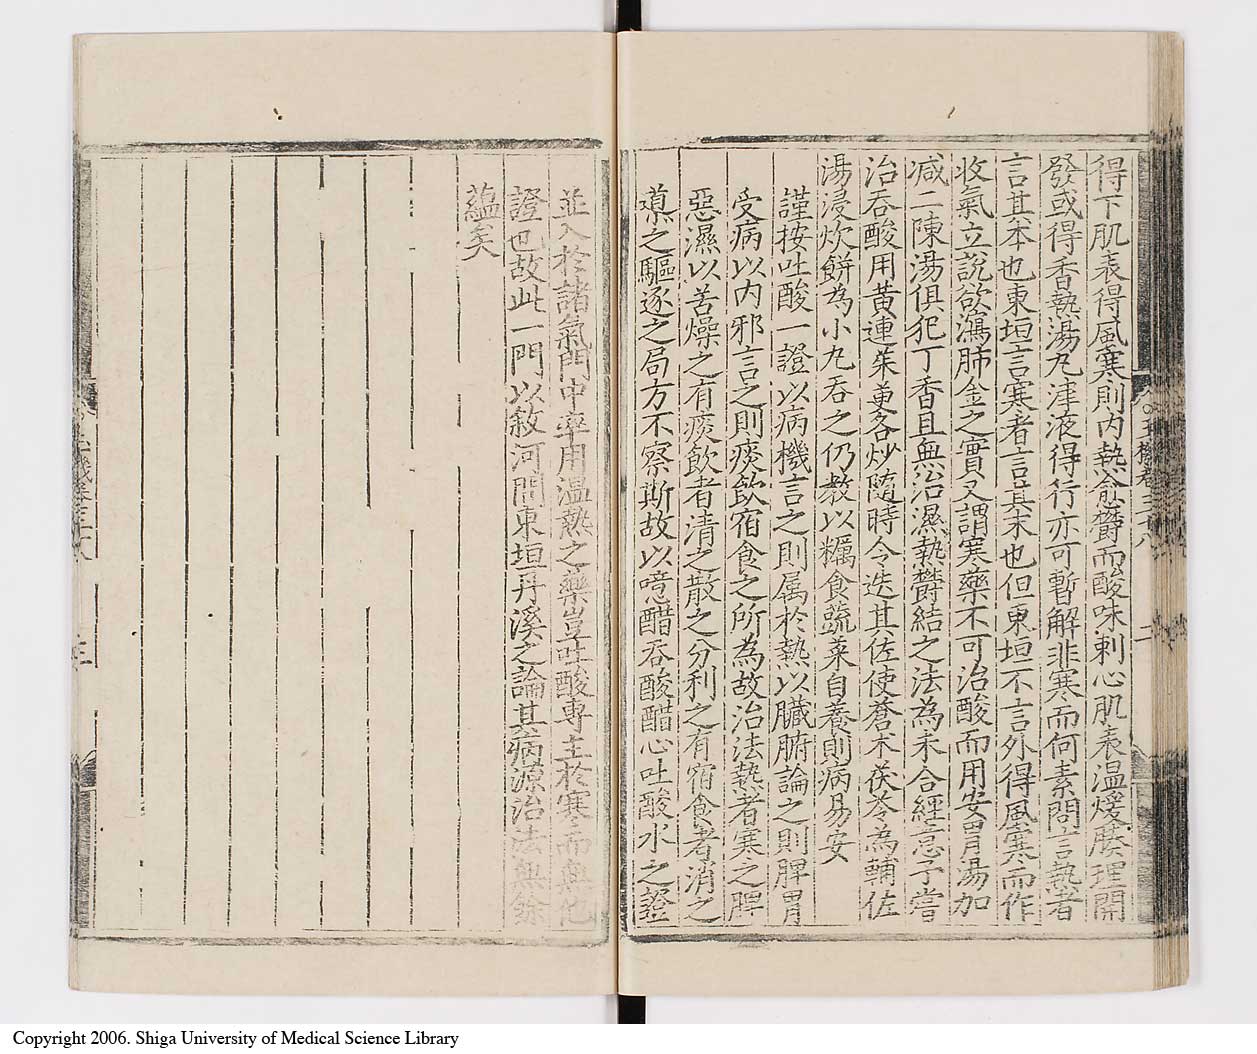 得下肌表得風寒則内熱愈欝而酸味刺心肌表温煖腠理開
發或得香熱湯丸津液得行亦可暫解非寒而何素問言熱者
言其本也東垣言寒者言其末也但東垣不言外得風寒而作
收氣立說欲瀉肺金之實又謂寒藥不可治酸而用安胃湯加
减二陳湯俱犯丁香且無治濕熱欝結之法為未合經意予嘗
治吞酸用黃連茱萸各炒隨時令迭其佐使蒼术茯苓為輔佐
湯浸炊餅為小丸吞之仍教以糲食蔬菜自養則病易安
謹按吐酸一證以病機言之則属於熱以臟腑論之則脾胃
受病以内邪言之則痰飲宿食之所為故治法熱者寒之脾
惡濕以苦燥之有痰飲者清之散之分利之有宿食者消之
導之驅逐之局方不察斯故以噫醋吞酸醋心吐酸水之證
並入於諸氣門中率用温熱之藥豈吐酸專主於寒而無他
證也故此一門以敘河間東垣丹溪之論其病源治法無餘
蘊矣
Copyright 2006. Shiga University of Medical Science Library